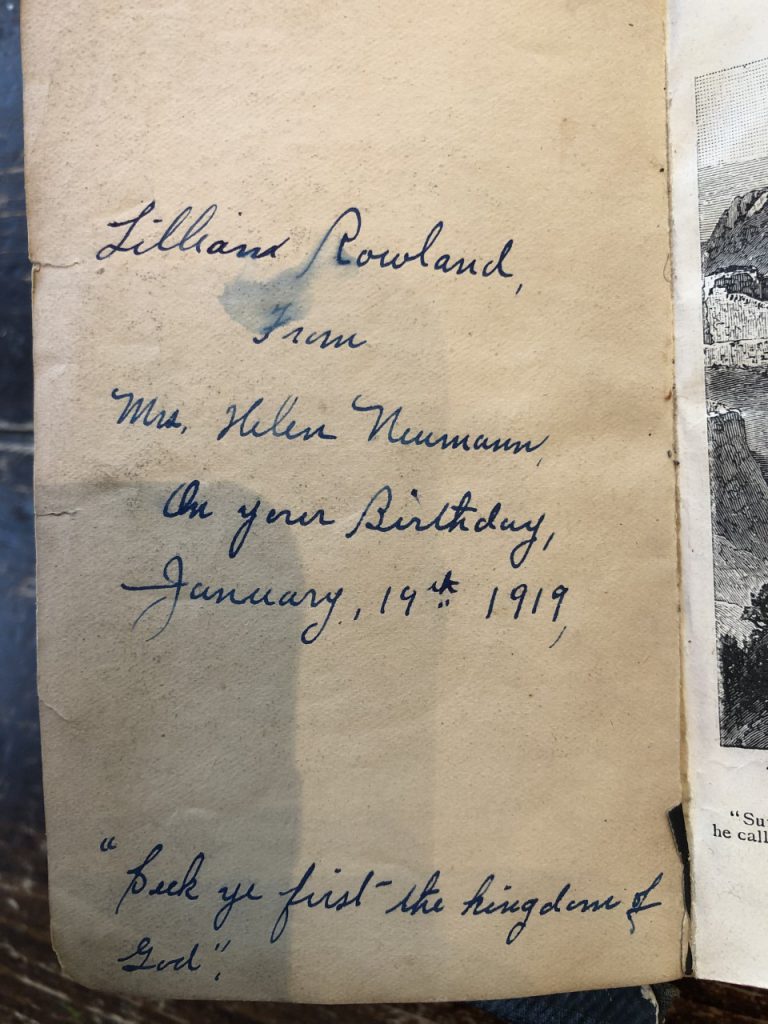 Lillian Rowland,
From
Mrs. Helen Neumann,
On your Birthday,
January, 19th 1919,
"Seek ye first the kingdom of
God".
"Su
he call